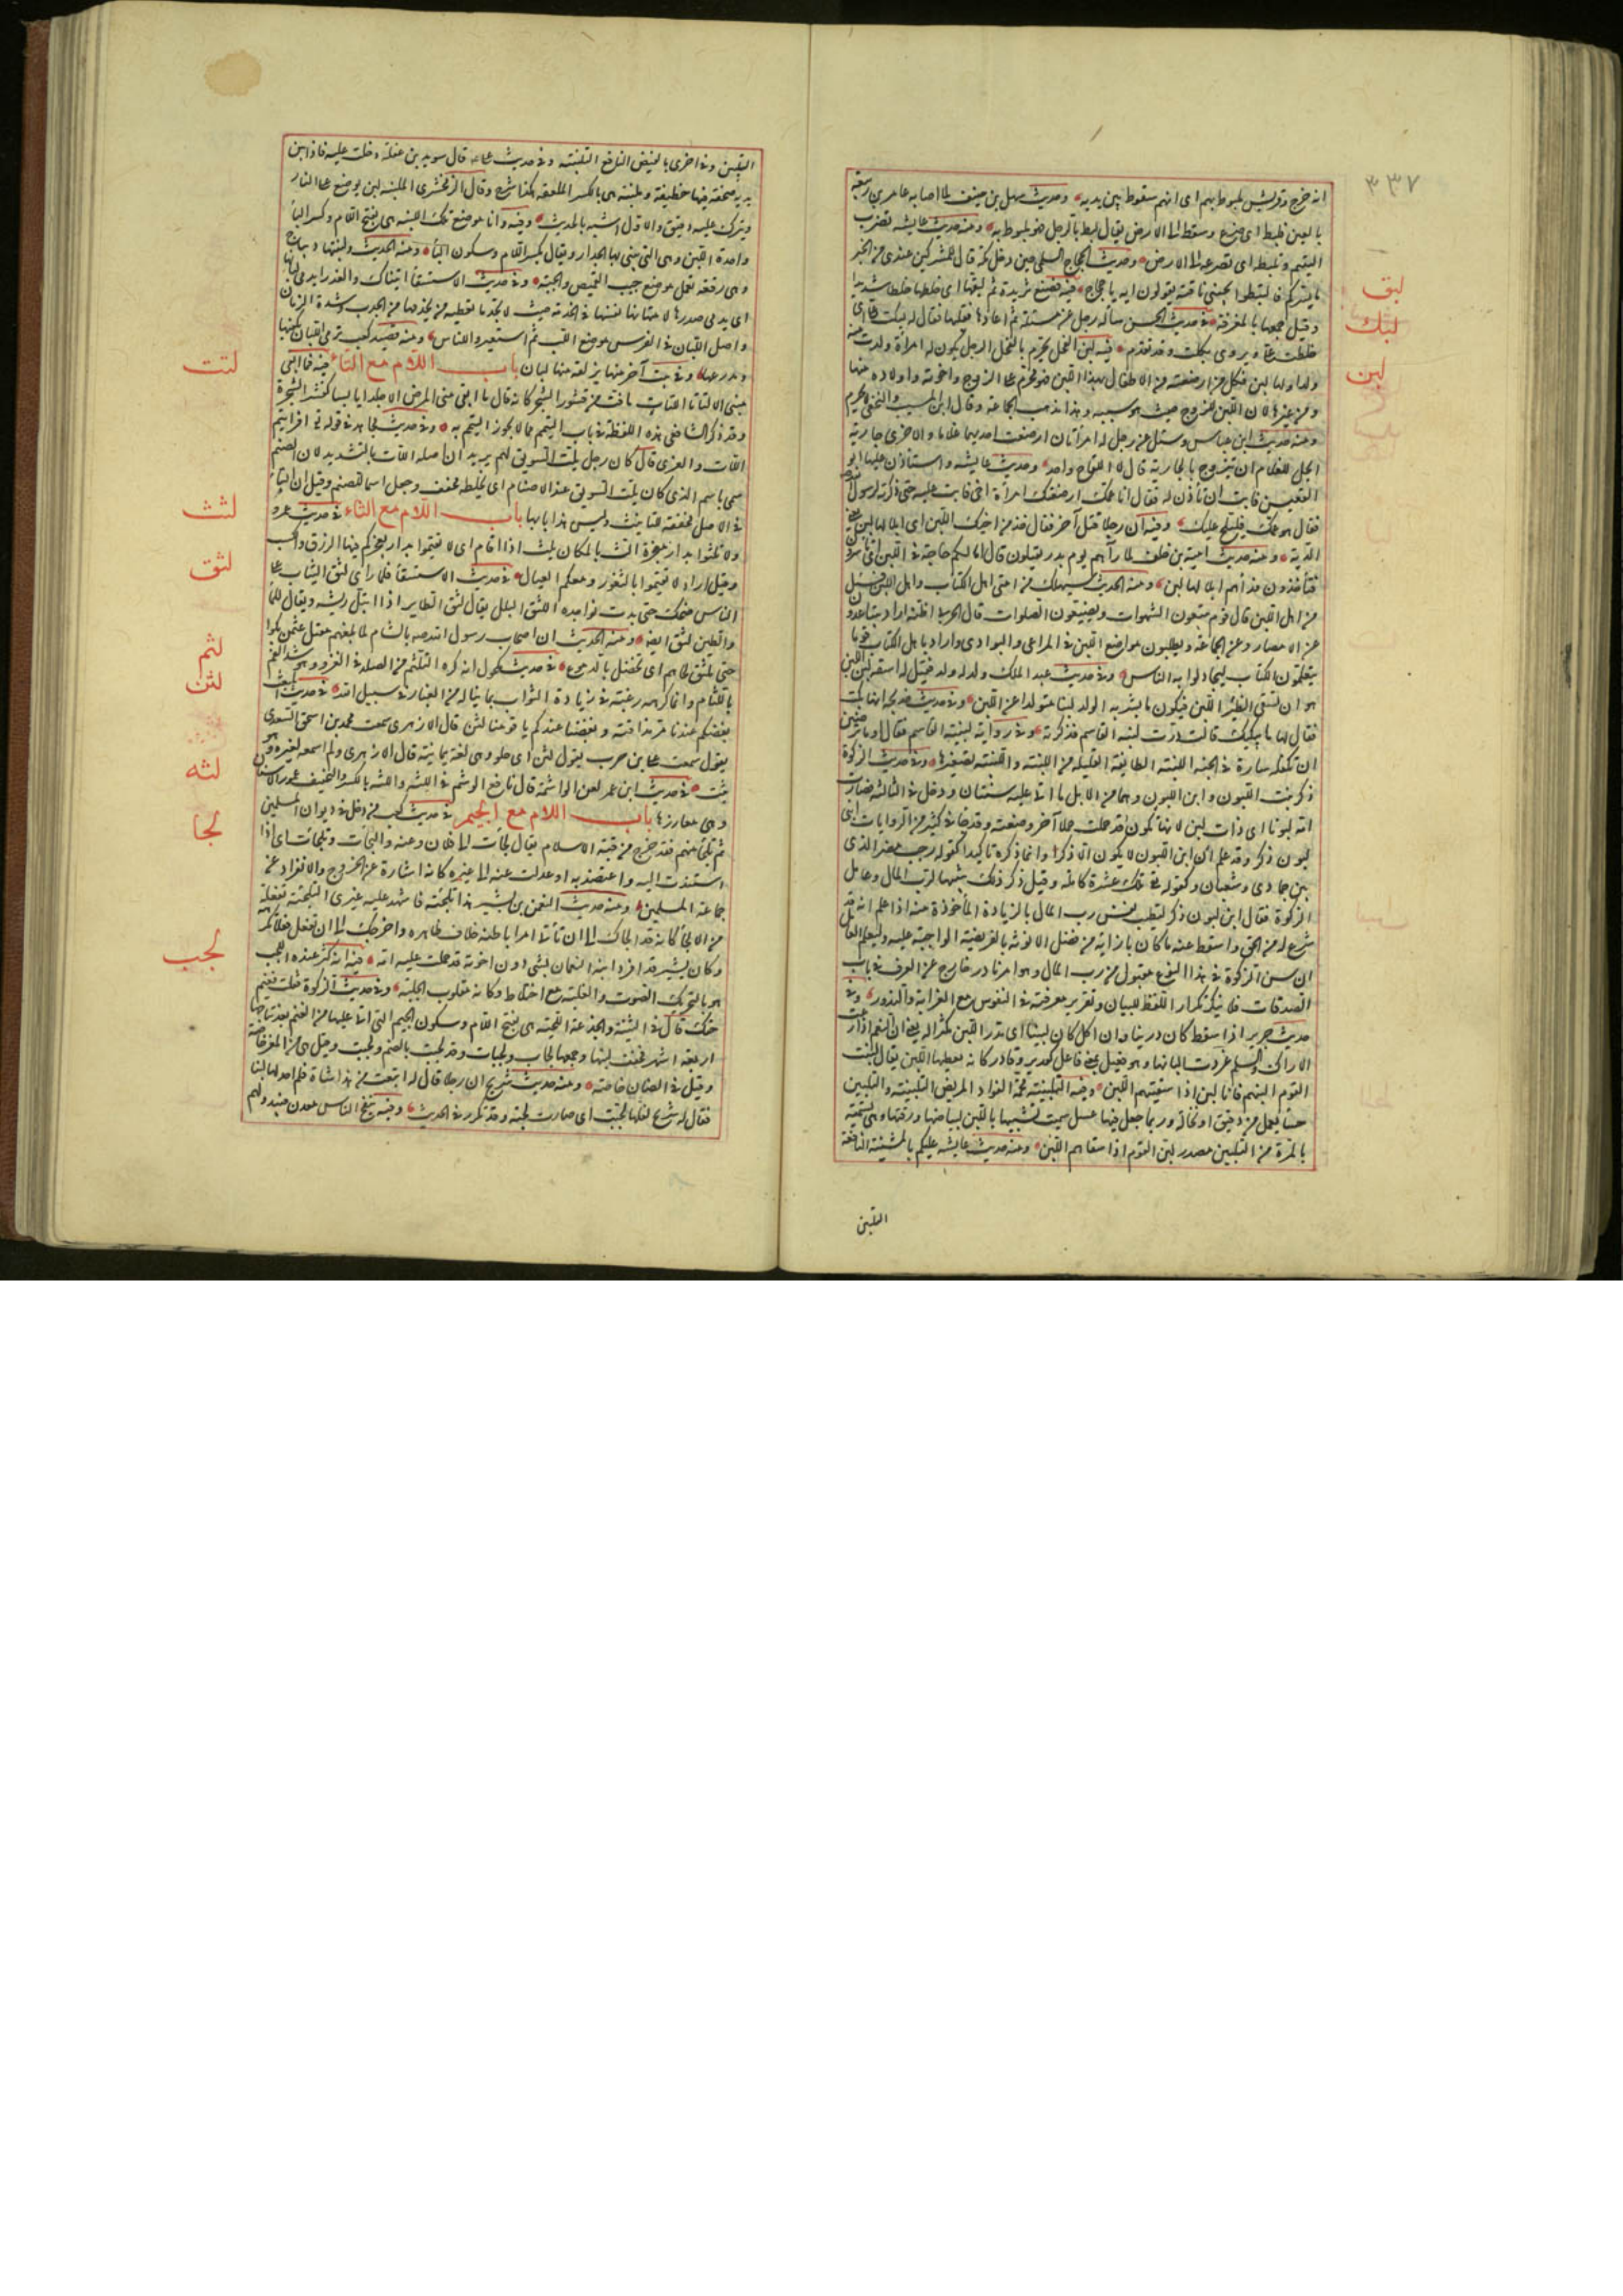 ٣٣٧
انه خرج وقريش ملبوط بهم اى انهم سقوط بين يديه وحديث سهل بن حنيف لما اصابه عامر بن ربيعة
بالعين فلبط اى صرع وسقط الى الارض يقال لبط بالرجل فهو ملبوط به ومنه حديث عايشه تضرب
اليتيم وتلبطه اى تصرعه الى الارض وحديث الحجاج السلمى حين دخل مكة قال للمشركين عندى من الخبر
ما يسركم فالتبطوا بجنبى ناقته يقولون ايه يا حجاج فيه فصنع ثريدة ثم لبقها اى خلطها خلطا شديدا
لبق
وقيل جمعها بالمغرفة فى حديث الحسن سأله رجل عن مسئلة ثم اعادها فقلبها فقال له لبكت على اى
لبك
خلطت على ويروى بكلت وقد تقدم فيه لبن الفحل يحرم بالفحل الرجل تكون له امرأة ولدت منه
لبن
ولدا ولها لبن فكل من ارضعته من الاطفال بهذا اللبن فهو محرم على الزوج واخوته واولاده منها
ومن غيرها لان اللبن للزوج حيث هو سببه وهذا مذهب الجماعة وقال ابن المسيب والنخعى لا يحرم
ومنه حديث ابن عباس وسئل عن رجل له امرأتان ارضعت احديهما غلاما والاخرى جارية
ايحل للغلام ان يتزوج بالجارية قال لا اللقاح واحد وحديث عايشه واستأذن عليها ابو
القعيس فابت ان تأذن له فقال انا عمك ارضعتك امرأة اخى فابت عليه حتى ذكرته لرسول الله
فقال هو عمك فليلج عليك وفيه ان رجلا قتل آخر فقال خذ من اخيك اللبن اى ابلا لها لبن يعنى
الدية ومنه حديث امية بن خلف لما رآهم يوم بدر يقتلون قال اما لكم حاجة فى اللبن اى تأسرون
فتأخذون فداهم ابلا لها لبن ومنه الحديث سيهلك من امتى اهل الكتاب واهل اللبن فسئل
من اهل اللبن قال قوم يتبعون الشهوات ويضيعون الصلوات قال الحربى اظنه اراد يتباعدون
عن الامصار وعن الجماعة ويطلبون مواضع اللبن فى المراعى والبوادى واراد باهل الكتاب قوما
يتعلمون الكتاب ليجادلوا به الناس وفى حديث عبد الملك ولد له ولد فقيل له اسقه لبن اللبن
هو ان تسقى الظئر اللبن فيكون ما يشربه الولد لبنا متولدا عن اللبن وفى حديث خديجة انها بكت
فقال لها ما يبكيك قالت درت لبنة القاسم فذكرته وفى رواية لبينة القاسم فقال اوما ترضين
ان تكفله سارة فى الجنة اللبنة الطايفة القليلة من اللبن واللبينة تصغيرها وفى حديث الزكوة
ذكر بنت اللبون وابن اللبون وهما من الابل ما اتى عليه سنتان ودخل فى الثالثة فصارت
امه لبونا اى ذات لبن لانها تكون قد حملت حملا آخر وضعته وقد جاء فى كثير من الروايات ابن
لبون ذكر وقد علم ان ابن اللبون لا يكون الا ذكرا وانما ذكره تاكيدا كقوله رجب مضر الذى
بين جمادى وشعبان وكقوله تع تلك عشرة كاملة وقيل ذكر ذلك تنبيها لرب المال وعامل
الزكوة فقال ابن لبون ذكر لتطيب نفس رب المال بالزيادة المأخوذة منه اذا علم انه قد
شرع له من الحق واسقط عنه ما كان بازايه من فضل الانوثة بالفريضة الواجبة عليه وليعلم العامل
ان سن الزكوة فى هذا النوع مقبول من رب المال وهو امر نادر خارج عن العرف فى باب
الصدقات فلا ينكر تكرار اللفظ للبيان وتقرير معرفته فى النفوس مع الغرابة والندور وفى
حديث جرير اذا سقط كان درينا وان اكل كان لبينا اى مدرا للبن مكثرا له يعنى ان النعم اذا رعت
الاراك والسلم غزرت البانها وهو فعيل بمعنى فاعل كقدير وقادر كانه يعطيها اللبن يقال لبنت
القوم البنهم فانا لابن اذا سقيتهم اللبن وفيه التلبينة مجمة لفؤاد المريض التلبينة والتلبين
حسا يعمل من دقيق او نخالة وربما جعل فيها عسل سميت تشبيها باللبن لبياضها ورقتها وهى تسمية
بالمرة من التلبين مصدر لبن القوم اذا سقاهم اللبن ومنه حديث عايشه عليكم بالمشنيئة النافعة
التلبين
التلبين وفى اخرى بالبغيض النافع التلبينة وفى حديث على قال سويد بن غفلة دخلت عليه فاذا بين
يديه صحفة فيها خطيفة وملبنة هى بالكسر الملعقة هكذا شرح وقال الزمخشرى الملبنة لبن يوضع على النار
ويترك عليه دقيق والاول اشبه بالحديث وفيه وانا موضع تلك اللبنة هى بفتح اللام وكسر الباء
واحدة اللبن وهى التى يبنى بها الجدار ويقال بكسر اللام وسكون الباء ومنه الحديث ولبنتها ديباج
وهى رقعة تعمل موضع جيب القميص والجبة وفى حديث الاستسقاء اتيناك والعذراء يدمى لبانها
اى يدمى صدرها لامتهانها نفسها فى الخدمة حيث لا تجد ما تعطيه من يخدمها من الجدب وشدة الزمان
واصل اللبان فى الفرس موضع اللبب ثم استعير للناس ومنه قصيد كعب ترمى اللبان بكفيها
ومدرعها وفى بيت آخر منها يزلقه منها لبان باب اللام مع التاء فيه فما ابقى
لتت
منى الا لتاتا اللتات ما فت من قشور الشجر كانه قال ما ابقى منى المرض الا جلدا يابسا كقشر الشجرة
وقد ذكر الشافعى هذه اللفظة فى باب التيمم مما لا يجوز التيمم به وفى حديث مجاهد فى قوله تع افرايتم
اللات والعزى قال كان رجل يلت السويق لهم يريد ان اصله اللات بالتشديد لان الصنم
سمى باسم الذى كان يلت السويق عند الاصنام اى يخلطه فخفف وجعل اسما للصنم وقيل ان التاء
فى الاصل مخففة للتانيث وليس هذا بابها باب اللام مع الثاء فى حديث عمر
لثث
ولا تلثوا بدار معجزة الث بالمكان يلث اذا اقام اى لا تقيموا بدار يعجزكم فيها الرزق والكسب
وقيل اراد لا تقيموا بالثغور ومعكم العيال فى حديث الاستسقاء فلما رأى لثق الثياب على
لثق
الناس ضحك حتى بدت نواجذه اللثق البلل يقال لثق الطاير اذا ابتل ريشه ويقال للماء
والطين لثق ايضا ومنه الحديث ان اصحاب رسول الله بالشام لما بلغهم مقتل عثمن بكوا
حتى تلثق لحاهم اى تخضل بالدموع فى حديث مكحول انه كره التلثم من الغبار فى الغزو وهو شد الفم
لثم
باللثام وانما كرهه رغبة فى زيادة الثواب بما يناله من الغبار فى سبيل الله فى حديث المبعث
لثن
بغضكم عندنا مر مذاقته وبغضنا عندكم يا قومنا لثن قال الازهرى سمعت محمد بن اسحق السعدى
يقول سمعت على بن حرب يقول لثن اى حلو وهى لغة يمانية قال الازهرى ولم اسمعه لغيره وهو
ثبت فى حديث ابن عمر لعن الواشمة قال نافع الوشم فى اللثة واللثة بالكسر والتخفيف عمور الاسنان
لثه
وهى مغارزها باب اللام مع الجيم فى حديث كعب من دخل فى ديوان المسلمين
لجأ
ثم تلجأ منهم فقد خرج من قبة الاسلام يقال لجأت الى فلان وعنه والتجأت وتلجأت اى اذا
استندت اليه واعتضدت به او عدلت عنه الى غيره كانه اشارة عن الخروج والانفراد عن
جماعة المسلمين ومنه حديث النعمن بن بشير هذا تلجئة فاشهد عليه غيرى التلجئة تفعلة
من الالجاء كانه قد الجاك الى ان تأتى امرا باطنه خلاف ظاهره واحوجك الى ان تفعل فعلا تكرهه
وكان بشير قد افرد ابنه النعمان بشئ دون اخوته قد حملته عليه امه فيه انه كثر عنده اللجب
لجب
هو بالتحريك الصوت والغلبة مع اختلاط وكانه مقلوب الجلبة وفى حديث الزكوة فقلت ففيم
حقك قال فى الثنية والجذعة اللجبة هى بفتح اللام وسكون الجيم التى اتى عليها من الغنم بعد نتاجها
اربعة اشهر فخف لبنها وجمعها لجاب ولجبات وقد لجبت بالضم ولجبت وقيل هى من المعز خاصة
وقيل فى الضان خاصة ومنه حديث شريح ان رجلا قال له ابتعت من هذا شاة فلم اجد لها لبنا
فقال له شريح لعلها لجبت اى صارت لجبة وقد تكرر فى الحديث وفيه ينفتح للناس معدن فيبدو لهم